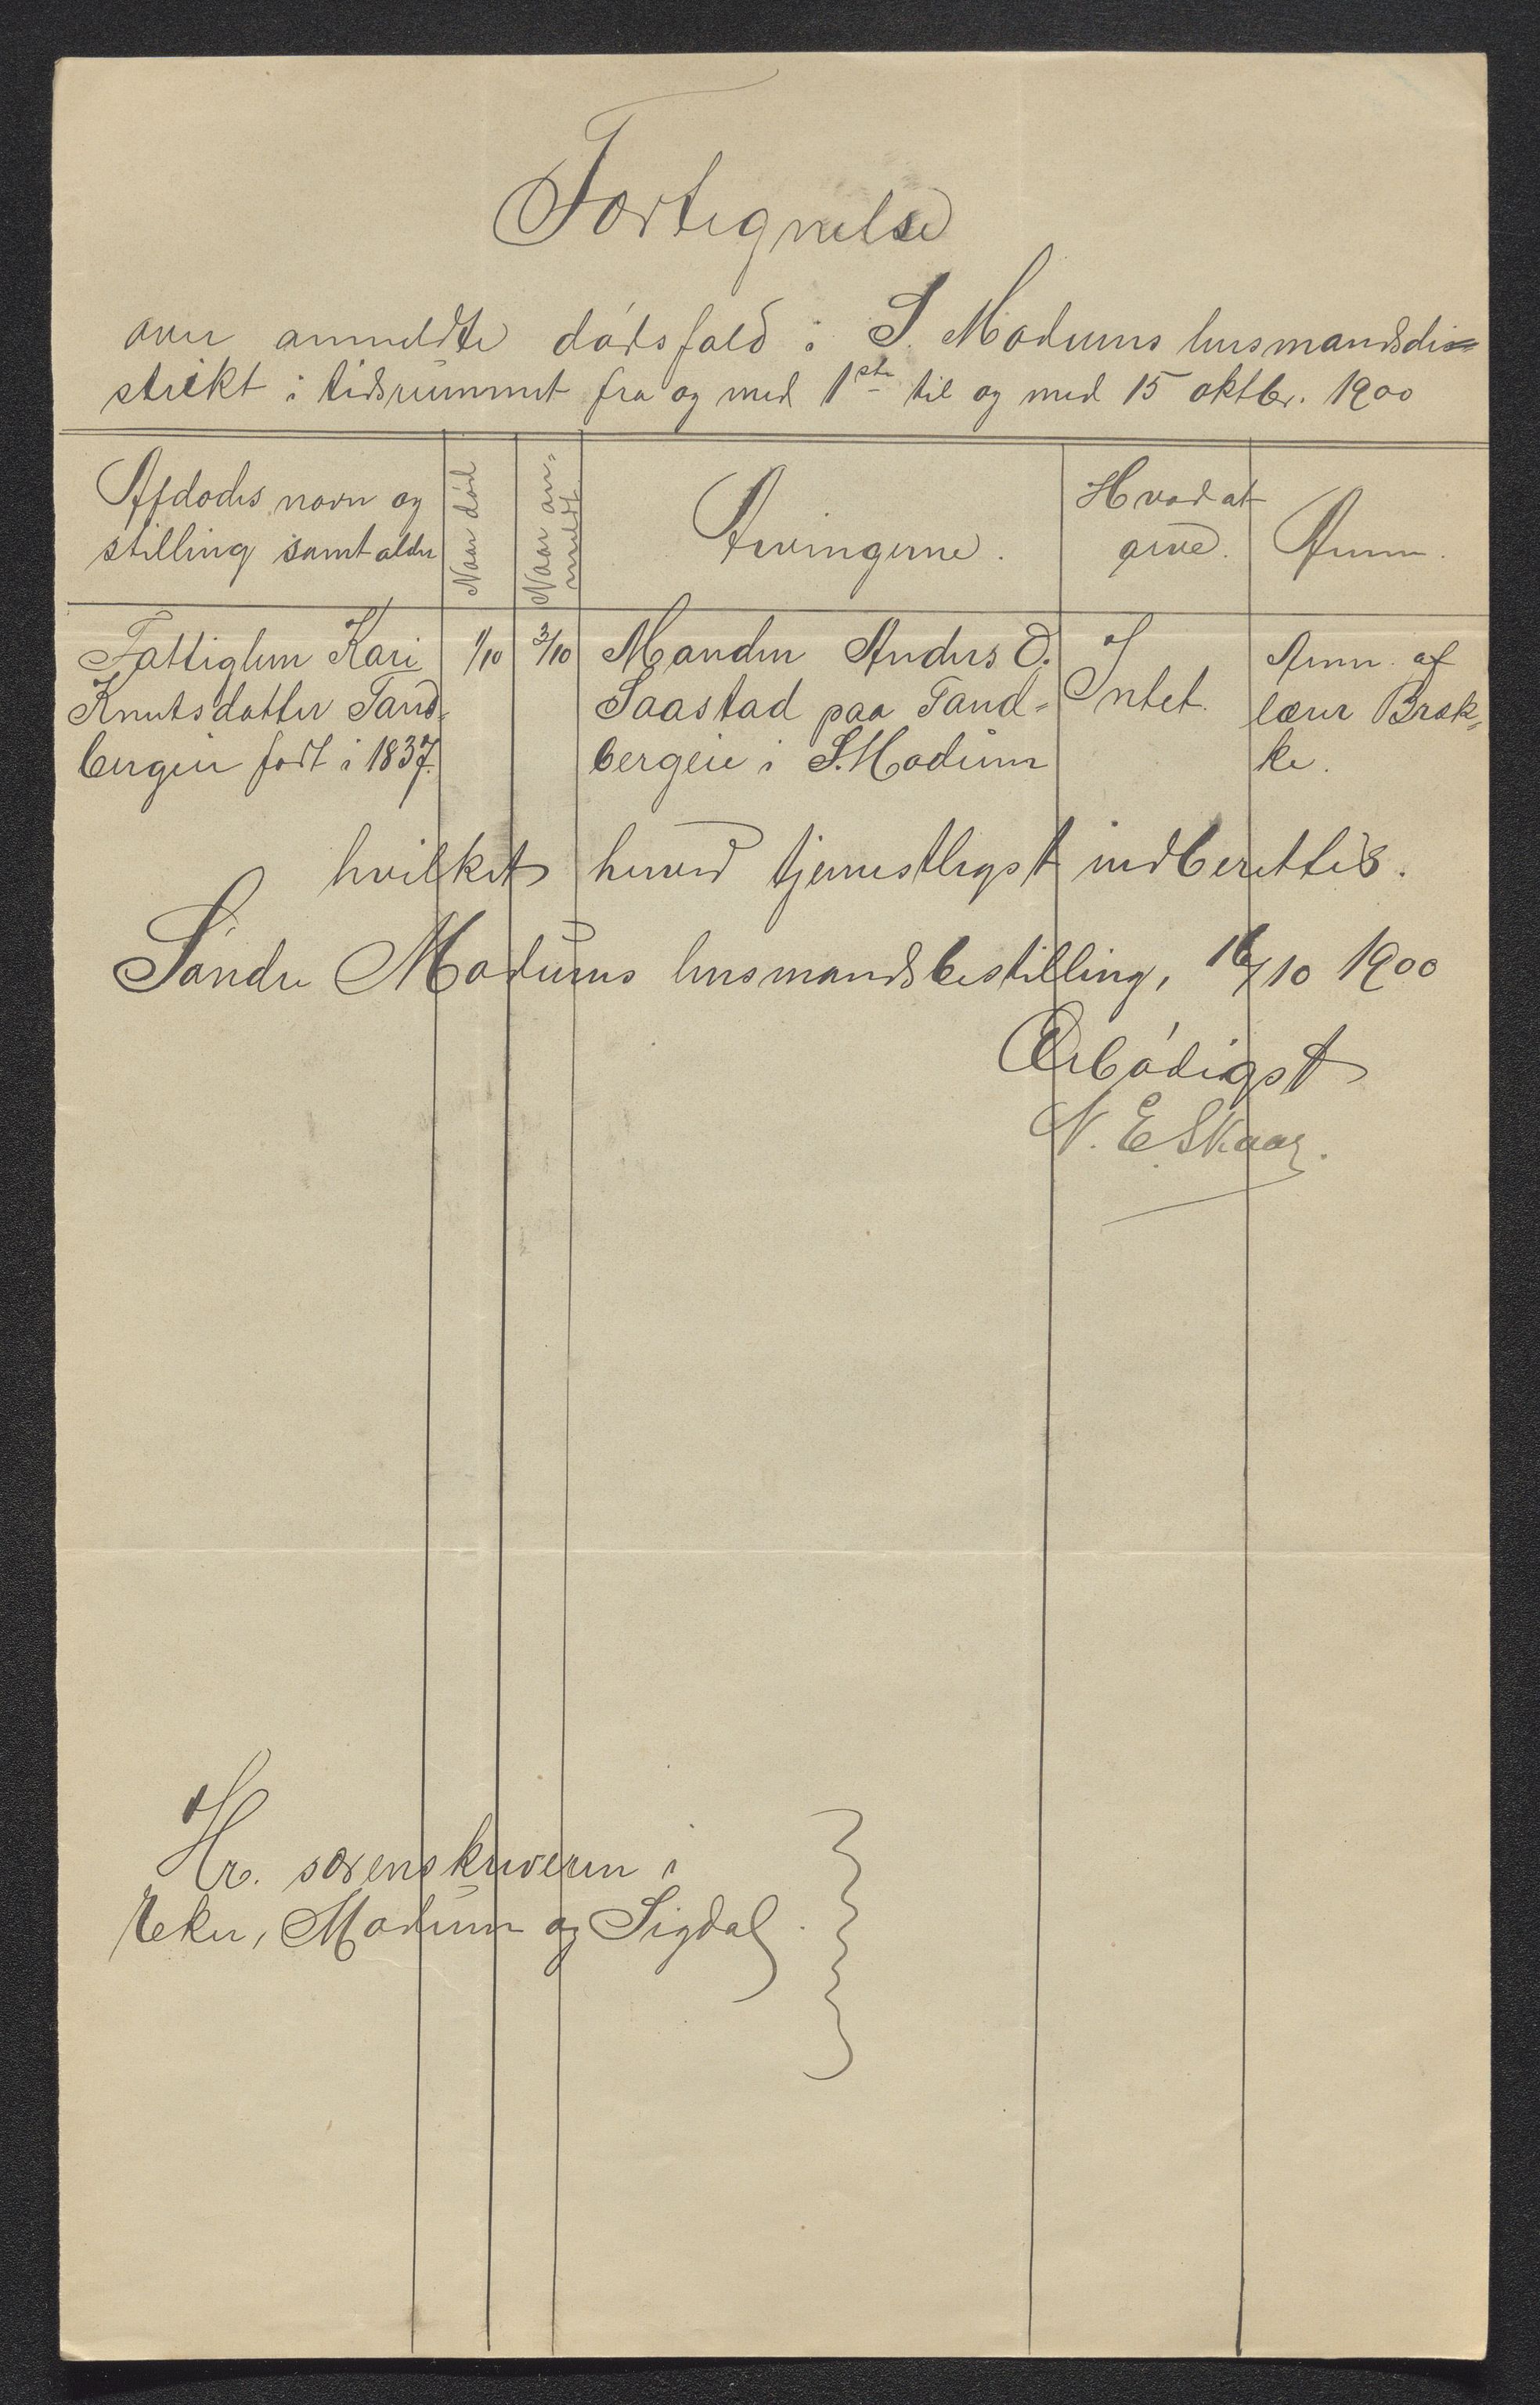 Fortegnelse
over anmeldte dødsfald i S. Modums lensmandsdi=
strikt i tidsrummet fra og med 1ste til og med 15 oktbr. 1900
Afdødes navn og
stilling samt alder
Naar død
Naar an-
meldt
Arvingerne.
Hvad at
arve.
Anm.
Fattiglem Kari
Knutsdatter Tand=
bergeie født i 1837.
1/10
3/10
Manden Anders O.
Saastad paa Tand=
bergeie i S. Modum
Intet.
Anm. af
lærer Bræk=
ke.
hvilket herved tjenestligst indberettes.
Søndre Modums lensmandsbestilling, 16/10 1900
Ærbødigst
N. E. Skaar.
Hr. sorenskriveren i
Eker, Modum og Sigdal.